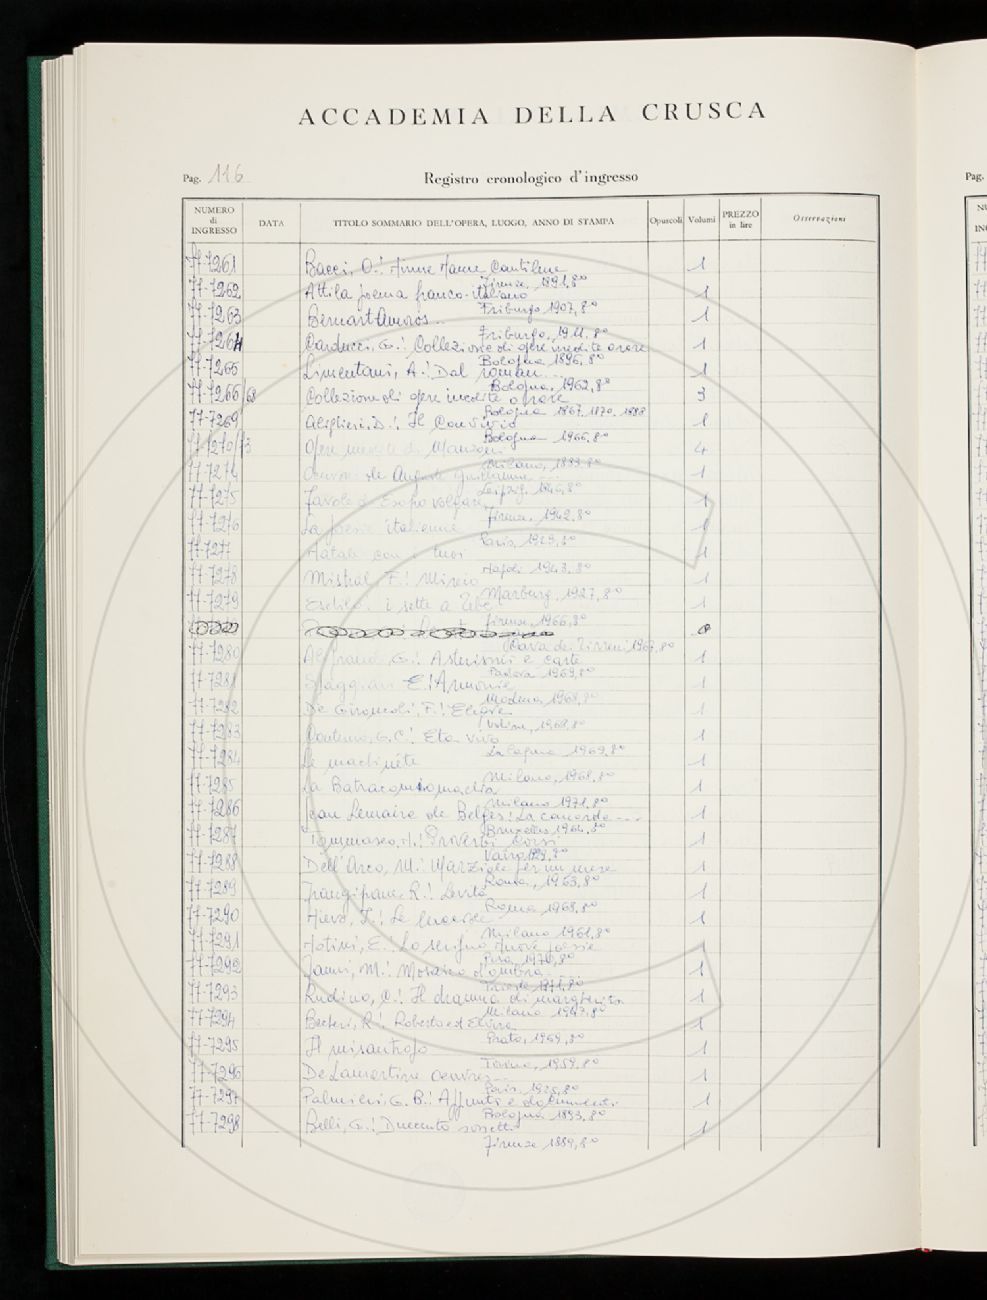 ACCADEMIA DELLA CRUSCA
Pag. 116
Registro cronologico d'ingresso
Pag.
NUMERO di INGRESSO
DATA
TITOLO SOMMARIO DELL'OPERA, LUOGO, ANNO DI STAMPA
Opuscoli
Volumi
PREZZO in lire
Osservazioni
77-7261 Bacci, O.: Cantilene 1
Firenze, 1891, 8°
77-7262 Attila poema franco-italiano 1
Friburgo, 1907, 8°
77-7263 Bernart Amoros.. 1
Friburgo, 1911, 8°
77-7264 Carducci, G.: Collezione di opere inedite o rare 1
Bologna 1896, 8°
77-7265 Limentani, A.: Dal roman... 1
Bologna, 1962, 8°
77-7266/68 Collezione di opere inedite o rare 3
Bologna 1867, 1870, 1888
77-7269 Alighieri, D.: Il Convivio 1
Bologna 1966, 8°
77-7270/73 Opere di Manzoni 4
Milano, 1883, 8°
77-7274 1
Leipzig, 8°
77-7275 Favole d'Esopo volgare 1
Firenze, 1942, 8°
77-7276 La poesie italienne 1
Paris, 8°
77-7277 Natale con i tuoi 1
Napoli 1943, 8°
77-7278 Mistral, F.: Mireio 1
Marburg, 1927, 8°
77-7279 Eschilo. i sette a Tebe 1
Firenze, 1966, 8°
Cava dei Tirreni 8°
77-7280 G.: Asterismi e carte 1
Padova 1969, 8°
77-7281 E.: Armonie 1
Modena, 1968, 8°
77-7282 De Gironcoli, F.: Elegie 1
Udine, 1968, 8°
77-7283 G.C.: Eta viva 1
1969, 8°
77-7284 Le machinète 1
Milano, 1968, 8°
77-7285 La Batracomiomachia 1
Milano 1971, 8°
77-7286 Jean Lemaire de Belges: La concorde --- 1
Bruxelles 1964, 8°
77-7287 Tommaseo, N.: Proverbi Corsi 1
8°
77-7288 Dell'Arco, M.: Marziale per un mese 1
Roma, 1963, 8°
77-7289 Frangipane, R.: Levità 1
Roma 1968, 8°
77-7290 Nievo, I.: Le lucciole 1
Milano 1961, 8°
77-7291 Notini, E.: Lo scrigno nuove poesie
Pisa, 1970, 8°
77-7292 M.: Mosaico d'ombra... 1
Trieste 1971, 8°
77-7293 Rudino, C.: Il dramma di margherita 1
Milano 1947, 8°
77-7294 R.: Roberto ed Elvira 1
Prato, 1969, 8°
77-7295 Il misantropo 1
Torino, 1959, 8°
77-7296 De Lamartine oeuvres... 1
Paris, 8°
77-7297 Palmieri, G.B.: Appunti e documenti 1
Bologna 1893, 8°
77-7298 Belli, G.: Duecento sonetti 1
Firenze 1889, 8°